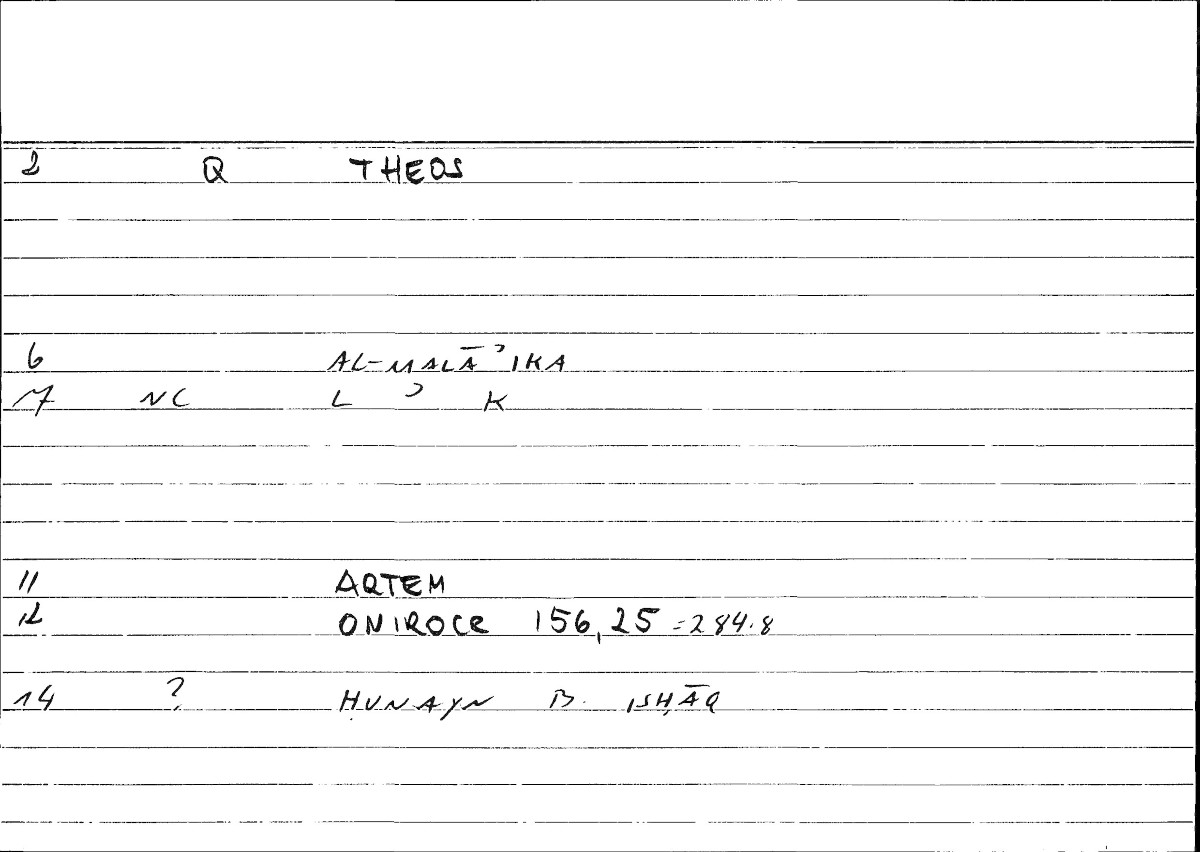 2 Q THEOS
6 AL-MALĀʾIKA
7 NC L ʾ K
11 ARTEM
12 ONIROCR 156,25 =284.8
14 ? ḤUNAYN B. ISḤĀQ